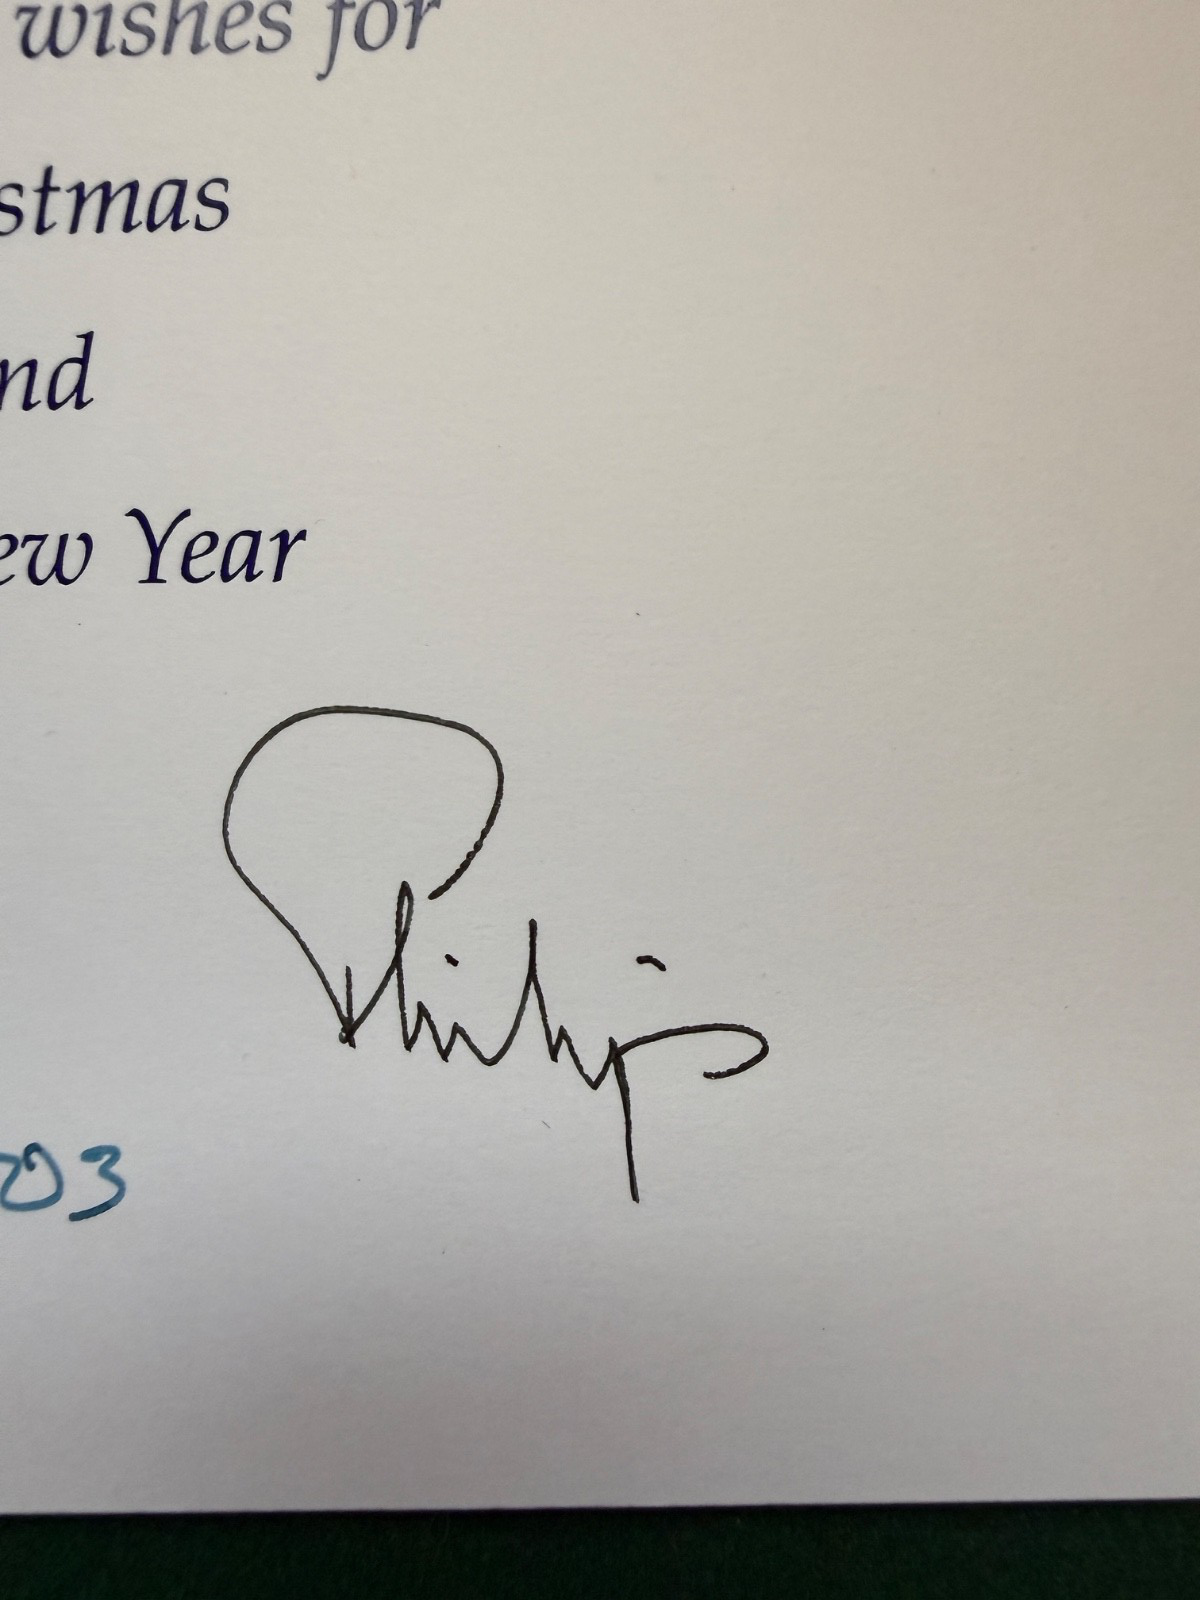 wishes for
stmas
nd
ew Year
Philip
003